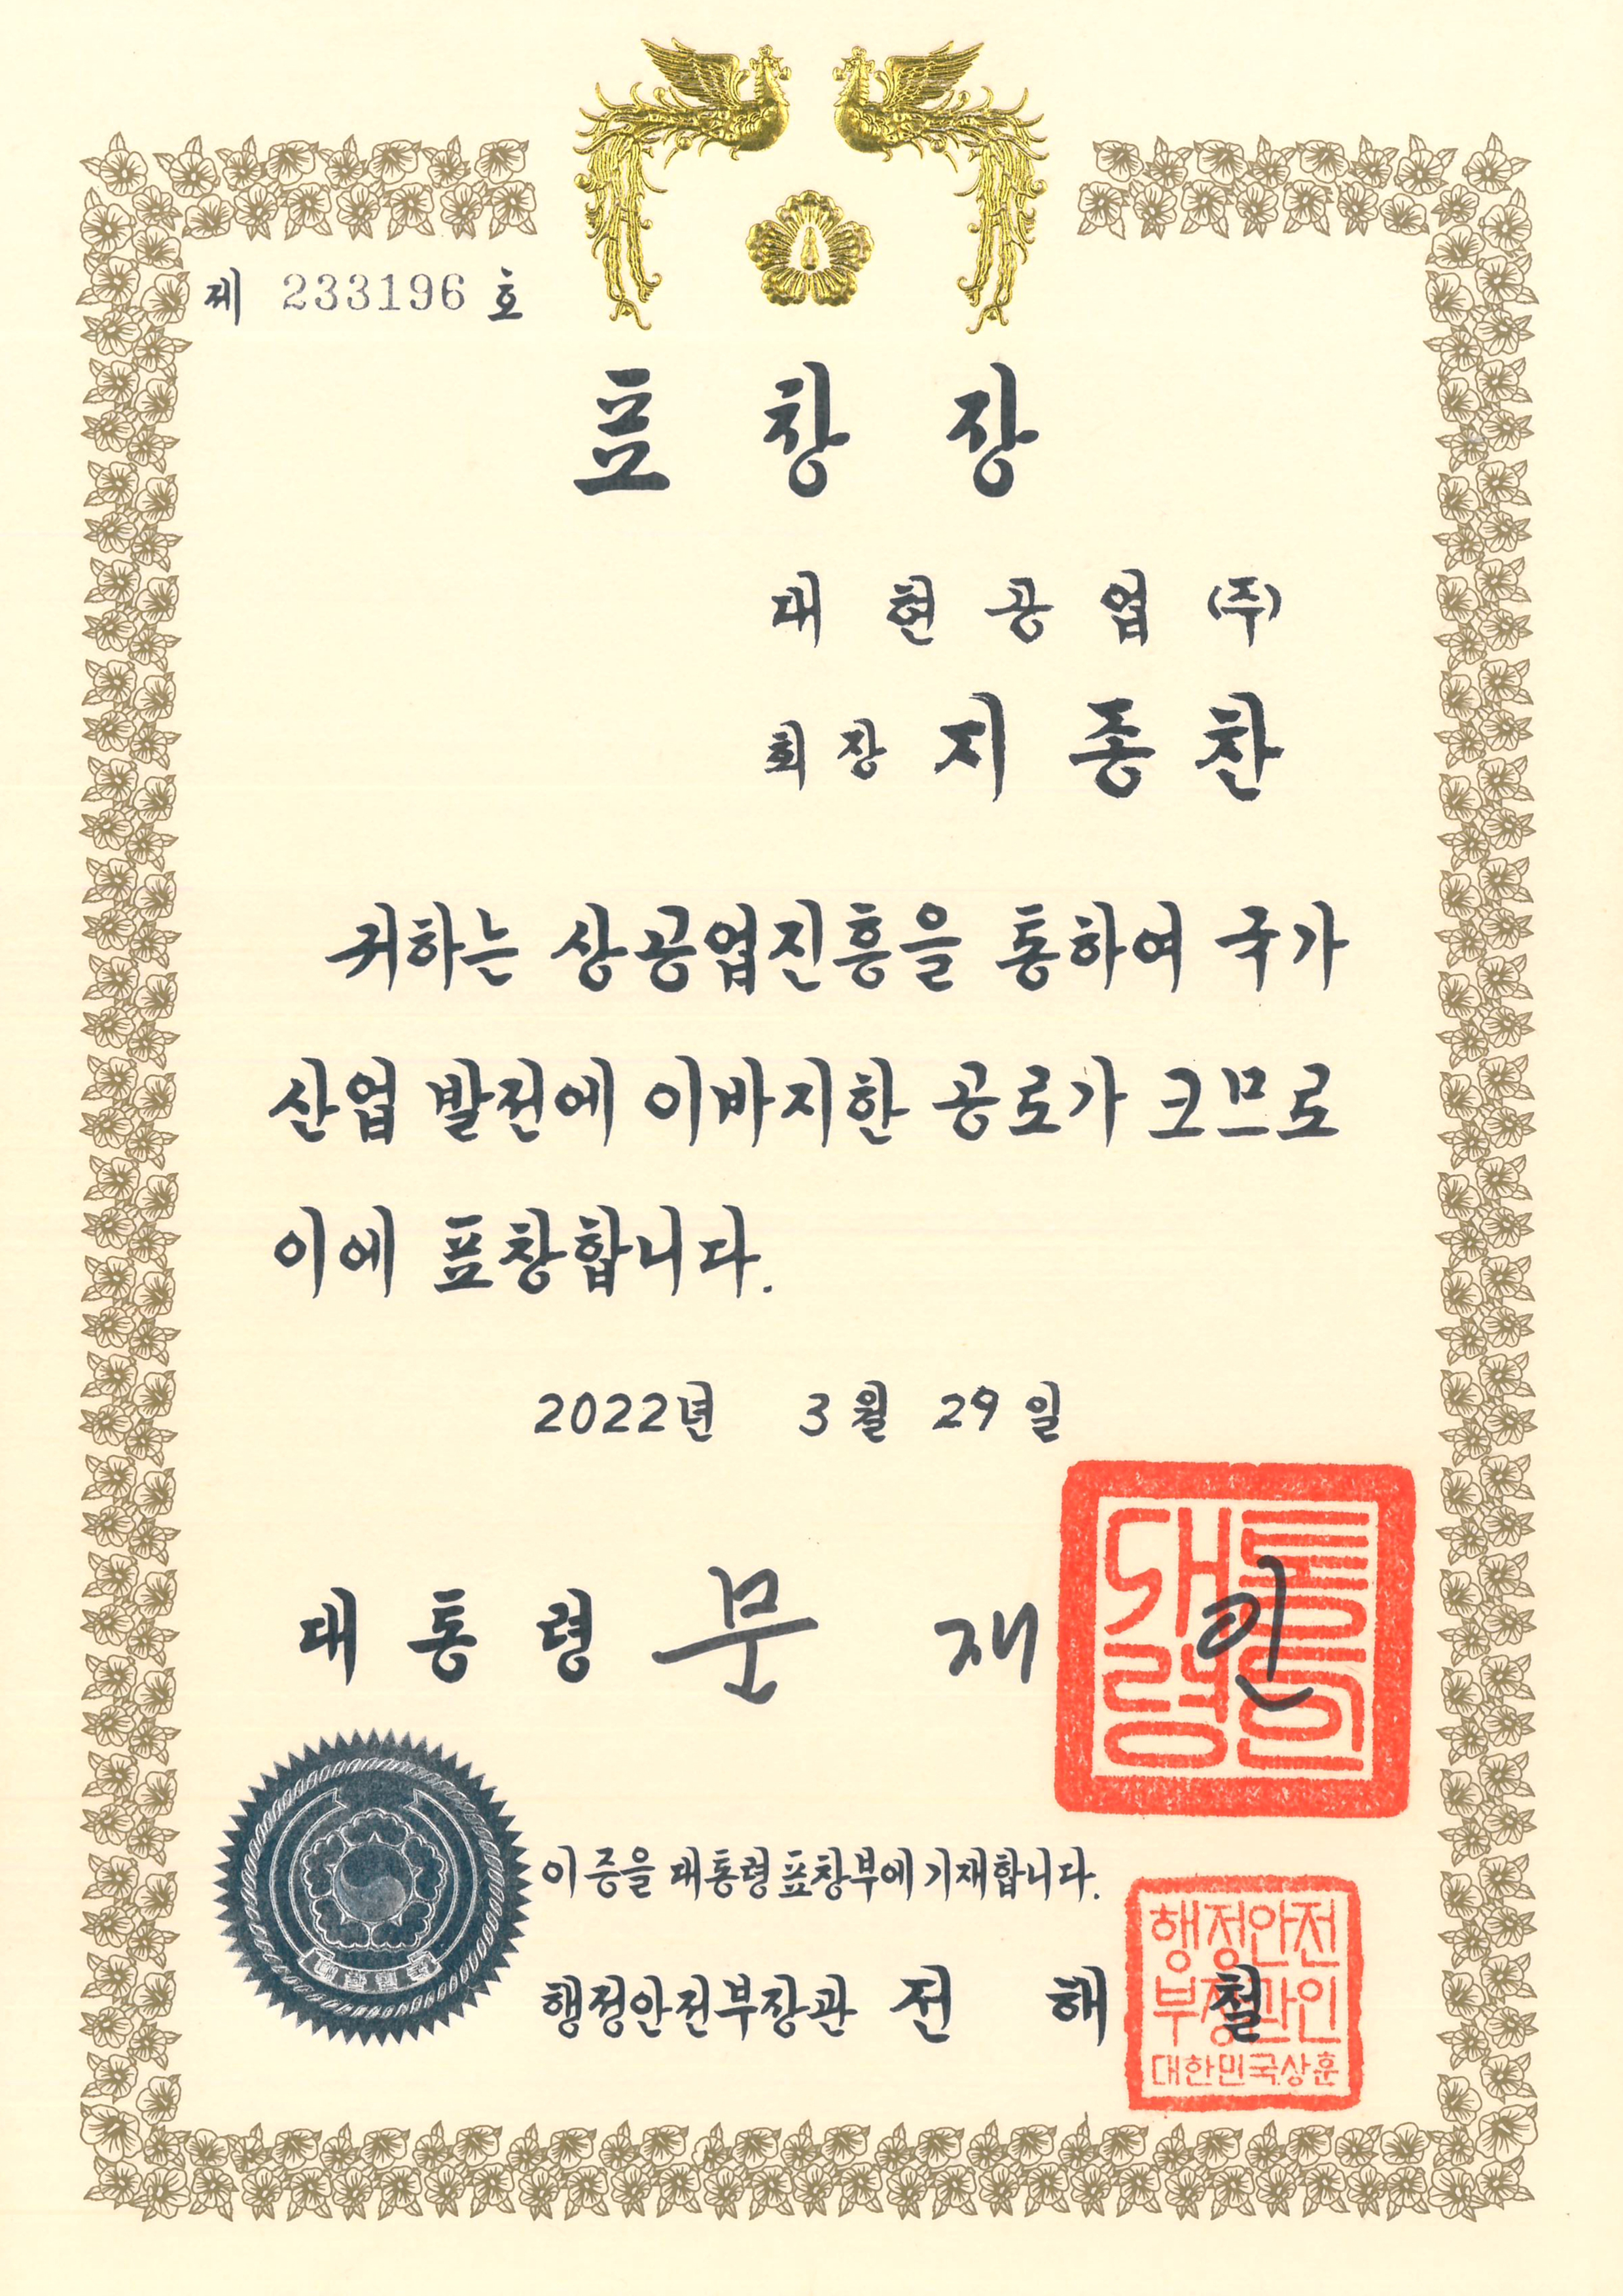 제 233196 호
표 창 장
대 현 공 업 (주)
회 장 지 종 찬
귀하는 상공업진흥을 통하여 국가
산업 발전에 이바지한 공로가 크므로
이에 표창합니다.
2022년 3월 29일
대 통 령 문 재 인
대통령인
이 증을 대통령표창부에 기재합니다.
행정안전부장관 전 해 철
행정안전
부장관인
대한민국상훈
대한민국